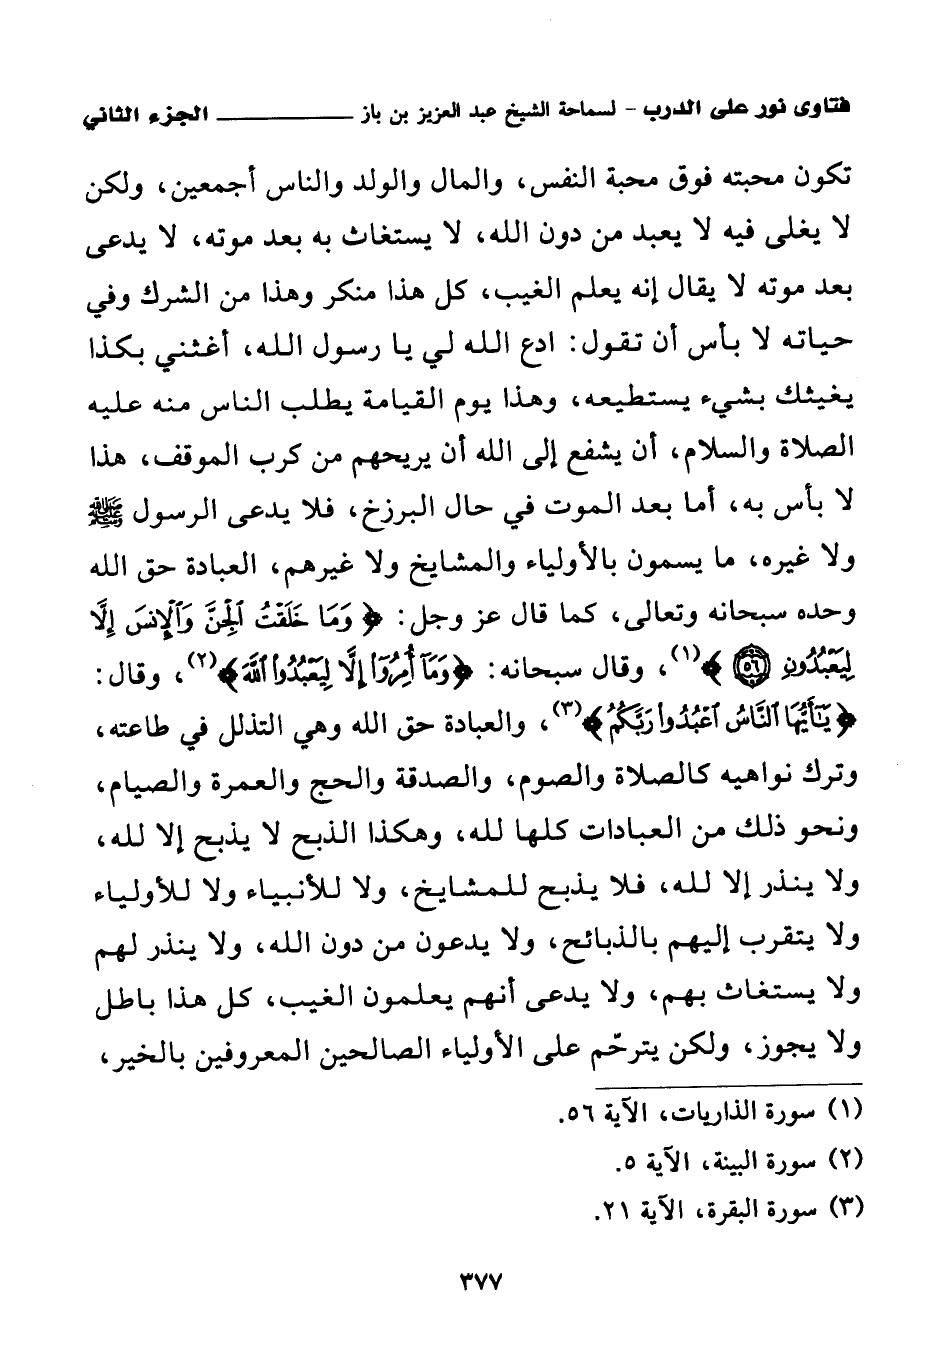 فتاوى نور على الدرب - لسماحة الشيخ عبد العزيز بن باز ــــــــــــ الجزء الثاني
تكون محبته فوق محبة النفس، والمال والولد والناس أجمعين، ولكن
لا يغلى فيه لا يعبد من دون الله، لا يستغاث به بعد موته، لا يدعى
بعد موته لا يقال إنه يعلم الغيب، كل هذا منكر وهذا من الشرك وفي
حياته لا بأس أن تقول: ادع الله لي يا رسول الله، أغثني بكذا
يغيثك بشيء يستطيعه، وهذا يوم القيامة يطلب الناس منه عليه
الصلاة والسلام، أن يشفع إلى الله أن يريحهم من كرب الموقف، هذا
لا بأس به، أما بعد الموت في حال البرزخ، فلا يدعى الرسول ﷺ
ولا غيره، ما يسمون بالأولياء والمشايخ ولا غيرهم، العبادة حق الله
وحده سبحانه وتعالى، كما قال عز وجل: ﴿وَمَا خَلَقْتُ ٱلْجِنَّ وَٱلْإِنسَ إِلَّا
لِيَعْبُدُونِ ٥٦﴾(١)، وقال سبحانه: ﴿وَمَآ أُمِرُوٓا۟ إِلَّا لِيَعْبُدُوا۟ ٱللَّهَ﴾(٢)، وقال:
﴿يَـٰٓأَيُّهَا ٱلنَّاسُ ٱعْبُدُوا۟ رَبَّكُمُ﴾(٣)، والعبادة حق الله وهي التذلل في طاعته،
وترك نواهيه كالصلاة والصوم، والصدقة والحج والعمرة والصيام،
ونحو ذلك من العبادات كلها لله، وهكذا الذبح لا يذبح إلا لله،
ولا ينذر إلا لله، فلا يذبح للمشايخ، ولا للأنبياء ولا للأولياء
ولا يتقرب إليهم بالذبائح، ولا يدعون من دون الله، ولا ينذر لهم
ولا يستغاث بهم، ولا يدعى أنهم يعلمون الغيب، كل هذا باطل
ولا يجوز، ولكن يترحّم على الأولياء الصالحين المعروفين بالخير،
(١) سورة الذاريات، الآية ٥٦.
(٢) سورة البينة، الآية ٥.
(٣) سورة البقرة، الآية ٢١.
٣٧٧